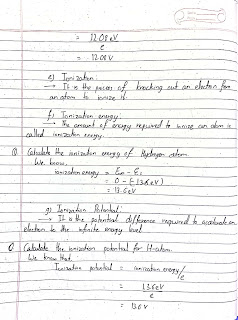 = 12.08 eV
e
= 12.08 V
e) Ionization:
→ It is the process of knocking out an electron from
an atom to ionize it.
f) Ionization energy:
→ The amount of energy required to ionize an atom is
called ionization energy.
Q Calculate the ionization energy of Hydrogen atom.
We know,
ionization energy = E∞ - E₁
= 0 - (-13.6 eV)
= 13.6 eV
g) Ionization Potential:
→ It is the potential difference required to accelerate an
electron to the infinite energy level.
Q Calculate the ionization potential for H-atom.
We know that
Ionization potential = ionization energy/e
= 13.6 eV
e
= 13.6 V